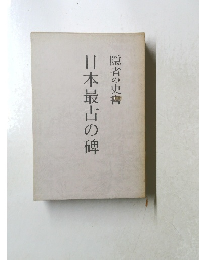 隠者の史書
日本最古の碑